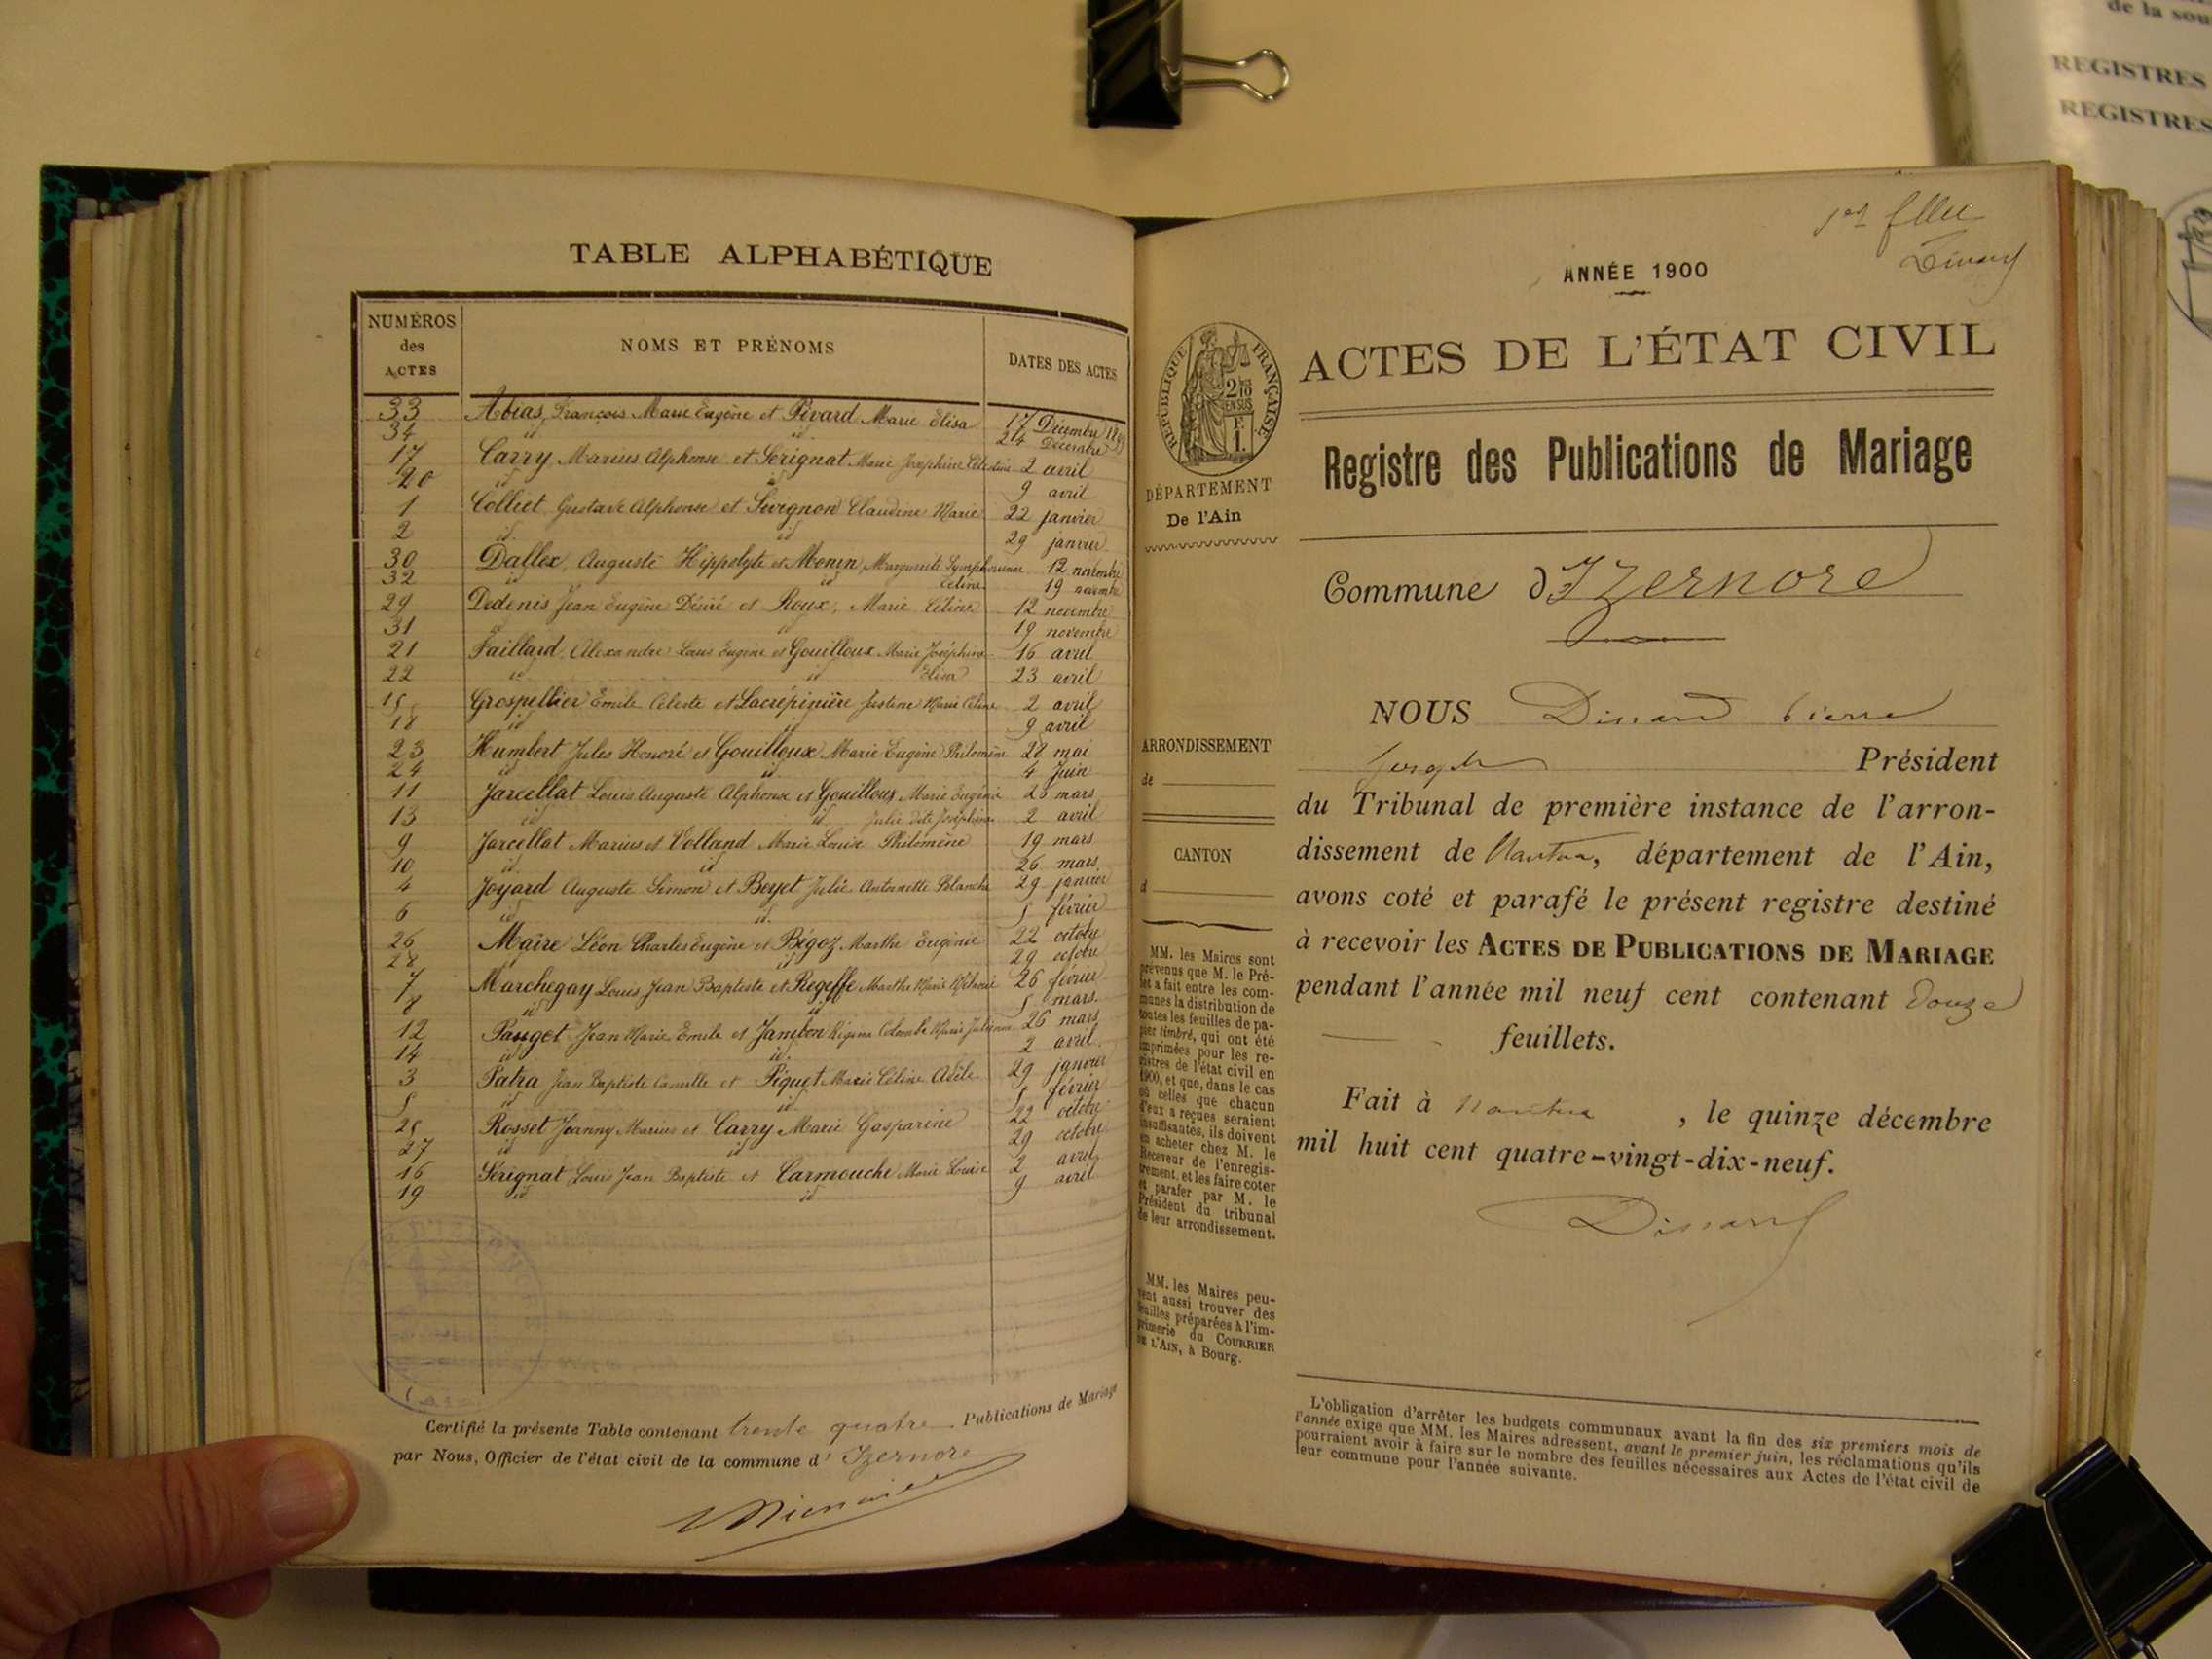 de la sou
REGISTRES
REGISTRES
TABLE ALPHABÉTIQUE
NUMÉROS des ACTES NOMS ET PRÉNOMS DATES DES ACTES
33 Abias, François Marie Eugène et Pivard Marie Elisa 17 Décembre
34 id id. 24 Décembre
17 Carry Marius Alphonse et Sérignat Marie Joséphine Célestine 2 avril
20 id id 9 avril
1 Colliet Gustave Alphonse et Sévignon Claudine Marie 22 janvier
2 id. id 29 janvier
30 Dallex, Auguste Hippolyte et Monin, Marguerite Symphorienne 12 novembre
32 id id Céline 19 novembre
29 Dedenis Jean Eugène Désiré et Roux, Marie Céline 12 novembre
31 id id 19 novembre
21 Faillard, Alexandre Louis Eugène et Gouilloux Marie Joséphine 16 avril
22 id id Elisa 23 avril
15 Grospellier Emile Céleste et Lacrépinière Justine Marie Céline 2 avril
18 id id 9 avril
23 Humbert Jules Honoré et Gouilloux Marie Eugénie Philomène 28 mai
24 id id 4 Juin
11 Jarcellat Louis Auguste Alphonse et Gouilloux Marie Eugénie 25 mars
13 id id Julie dite Joséphine 2 avril
9 Jarcellat Marius et Volland Marie Louise Philomène 19 mars
10 id. id 26 mars
4 Joyard Auguste Simon et Beyet Julie Antoinette Blanche 29 janvier
6 id id. 5 février
26 Maire Léon Charles Eugène et Bégoz Marthe Eugénie 22 octobre
28 id 29 octobre
7 Marchegay Louis Jean Baptiste et Regeffe Marthe Marie Mélanie 26 février
8 id id 5 mars
12 Pauget Jean Marie Emile et Jambon Régina Colombe Marie Julienne 26 mars
14 id id. 2 avril
3 Patra Jean Baptiste Camille et Piquet Marie Céline Adèle 29 janvier
5 id id. 5 février
25 Rosset Jeanny Marius et Carry Marie Gasparine 22 octobre
27 id id 29 octobre
16 Sérignat Louis Jean Baptiste et Carmouche Marie Louise 2 avril
19 id id 9 avril
Certifié la présente Table contenant trente quatre Publications de Mariage
par Nous, Officier de l'état civil de la commune d' Izernore
ANNÉE 1900
RÉPUBLIQUE FRANÇAISE
ACTES DE L'ÉTAT CIVIL
Registre des Publications de Mariage
DÉPARTEMENT
De l'Ain
Commune d'Izernore
NOUS Dinard Pierre
Joseph Président
du Tribunal de première instance de l'arron-
dissement de Nantua, département de l'Ain,
avons coté et parafé le présent registre destiné
à recevoir les ACTES DE PUBLICATIONS DE MARIAGE
pendant l'année mil neuf cent contenant douze
feuillets.
Fait à Nantua, le quinze décembre
mil huit cent quatre-vingt-dix-neuf.
Dinard
ARRONDISSEMENT
de
CANTON
d
MM. les Maires sont
prévenus que M. le Pré-
fet a fait entre les com-
munes la distribution de
toutes les feuilles de pa-
pier timbré, qui ont été
imprimées pour les re-
gistres de l'état civil en
1900, et que, dans le cas
où celles que chacun
d'eux a reçues seraient
insuffisantes, ils doivent
en acheter chez M. le
Receveur de l'enregis-
trement, et les faire coter
et parafer par M. le
Président du tribunal
de leur arrondissement.
MM. les Maires peu-
vent aussi trouver des
feuilles préparées à l'im-
primerie du COURRIER
DE L'AIN, à Bourg.
L'obligation d'arrêter les budgets communaux avant la fin des six premiers mois de
l'année exige que MM. les Maires adressent, avant le premier juin, les réclamations qu'ils
pourraient avoir à faire sur le nombre des feuilles nécessaires aux Actes de l'état civil de
leur commune pour l'année suivante.